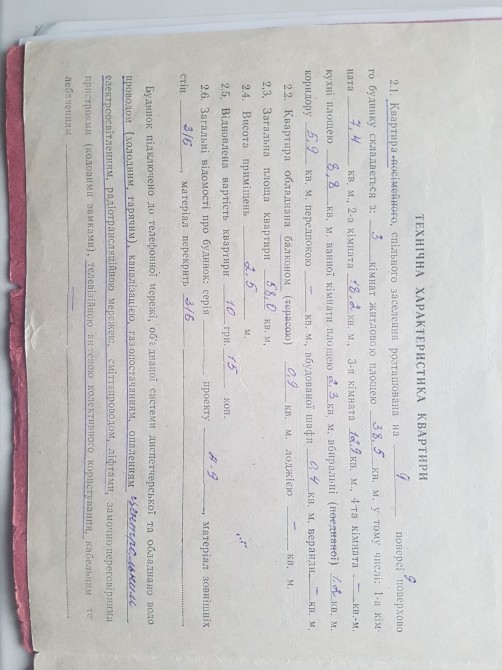 ТЕХНІЧНА ХАРАКТЕРИСТИКА КВАРТИРИ
2.1. Квартира посімейного, спільного заселення розташована на 9 поверсі 9 поверхово
го будинку складається з: 3 кімнат житловою площею 38,5 кв. м, у тому числі: 1-а кім-
ната 7,4 кв. м., 2-а кімната 18.2 кв. м., 3-я кімната 12.9 кв. м., 4-та кімната — кв.-м.
кухні площею 8,8 кв. м. ванної кімнати площею 2.3 кв. м, вбиральні (поєднаної) 1.2 кв. м.
коридору 5,9 кв. м, передпокою — кв. м., вбудованої шафи 0,4 кв. м. веранди — кв. м.
2.2. Квартира обладнана балконом (терасою) 0,9 кв. м. лоджією — кв. м.
2,3, Загальна площа квартири 58,0 кв. м,
2.4. Висота приміщень 2,5 м.
2.5. Відновлена вартість квартири 10 грн. 15 коп.
2.6. Загальні відомості про будинок: серія проекту, матеріал зовнішніх
стін з/б, матеріал перекрить з/б
Будинок підключено до телефонної мережі; об'єднаної системи диспетчерської та обладнано водо
проводом (холодним, гарячим), каналізацією, газопостачанням, опаленням центральним
електроосвітленням, радіотрансляційною мережею; сміттєпроводом, ліфтами, замочно-переговірними
пристроями (кодовими замками), телевізійною антеною колективного користування, кабельним те
лебаченням